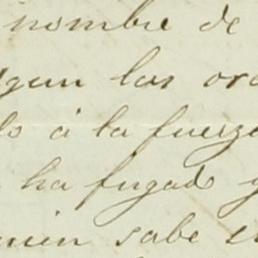 nombre de
segun las ord
do á la fuerza
ha fugado y
quien sabe e